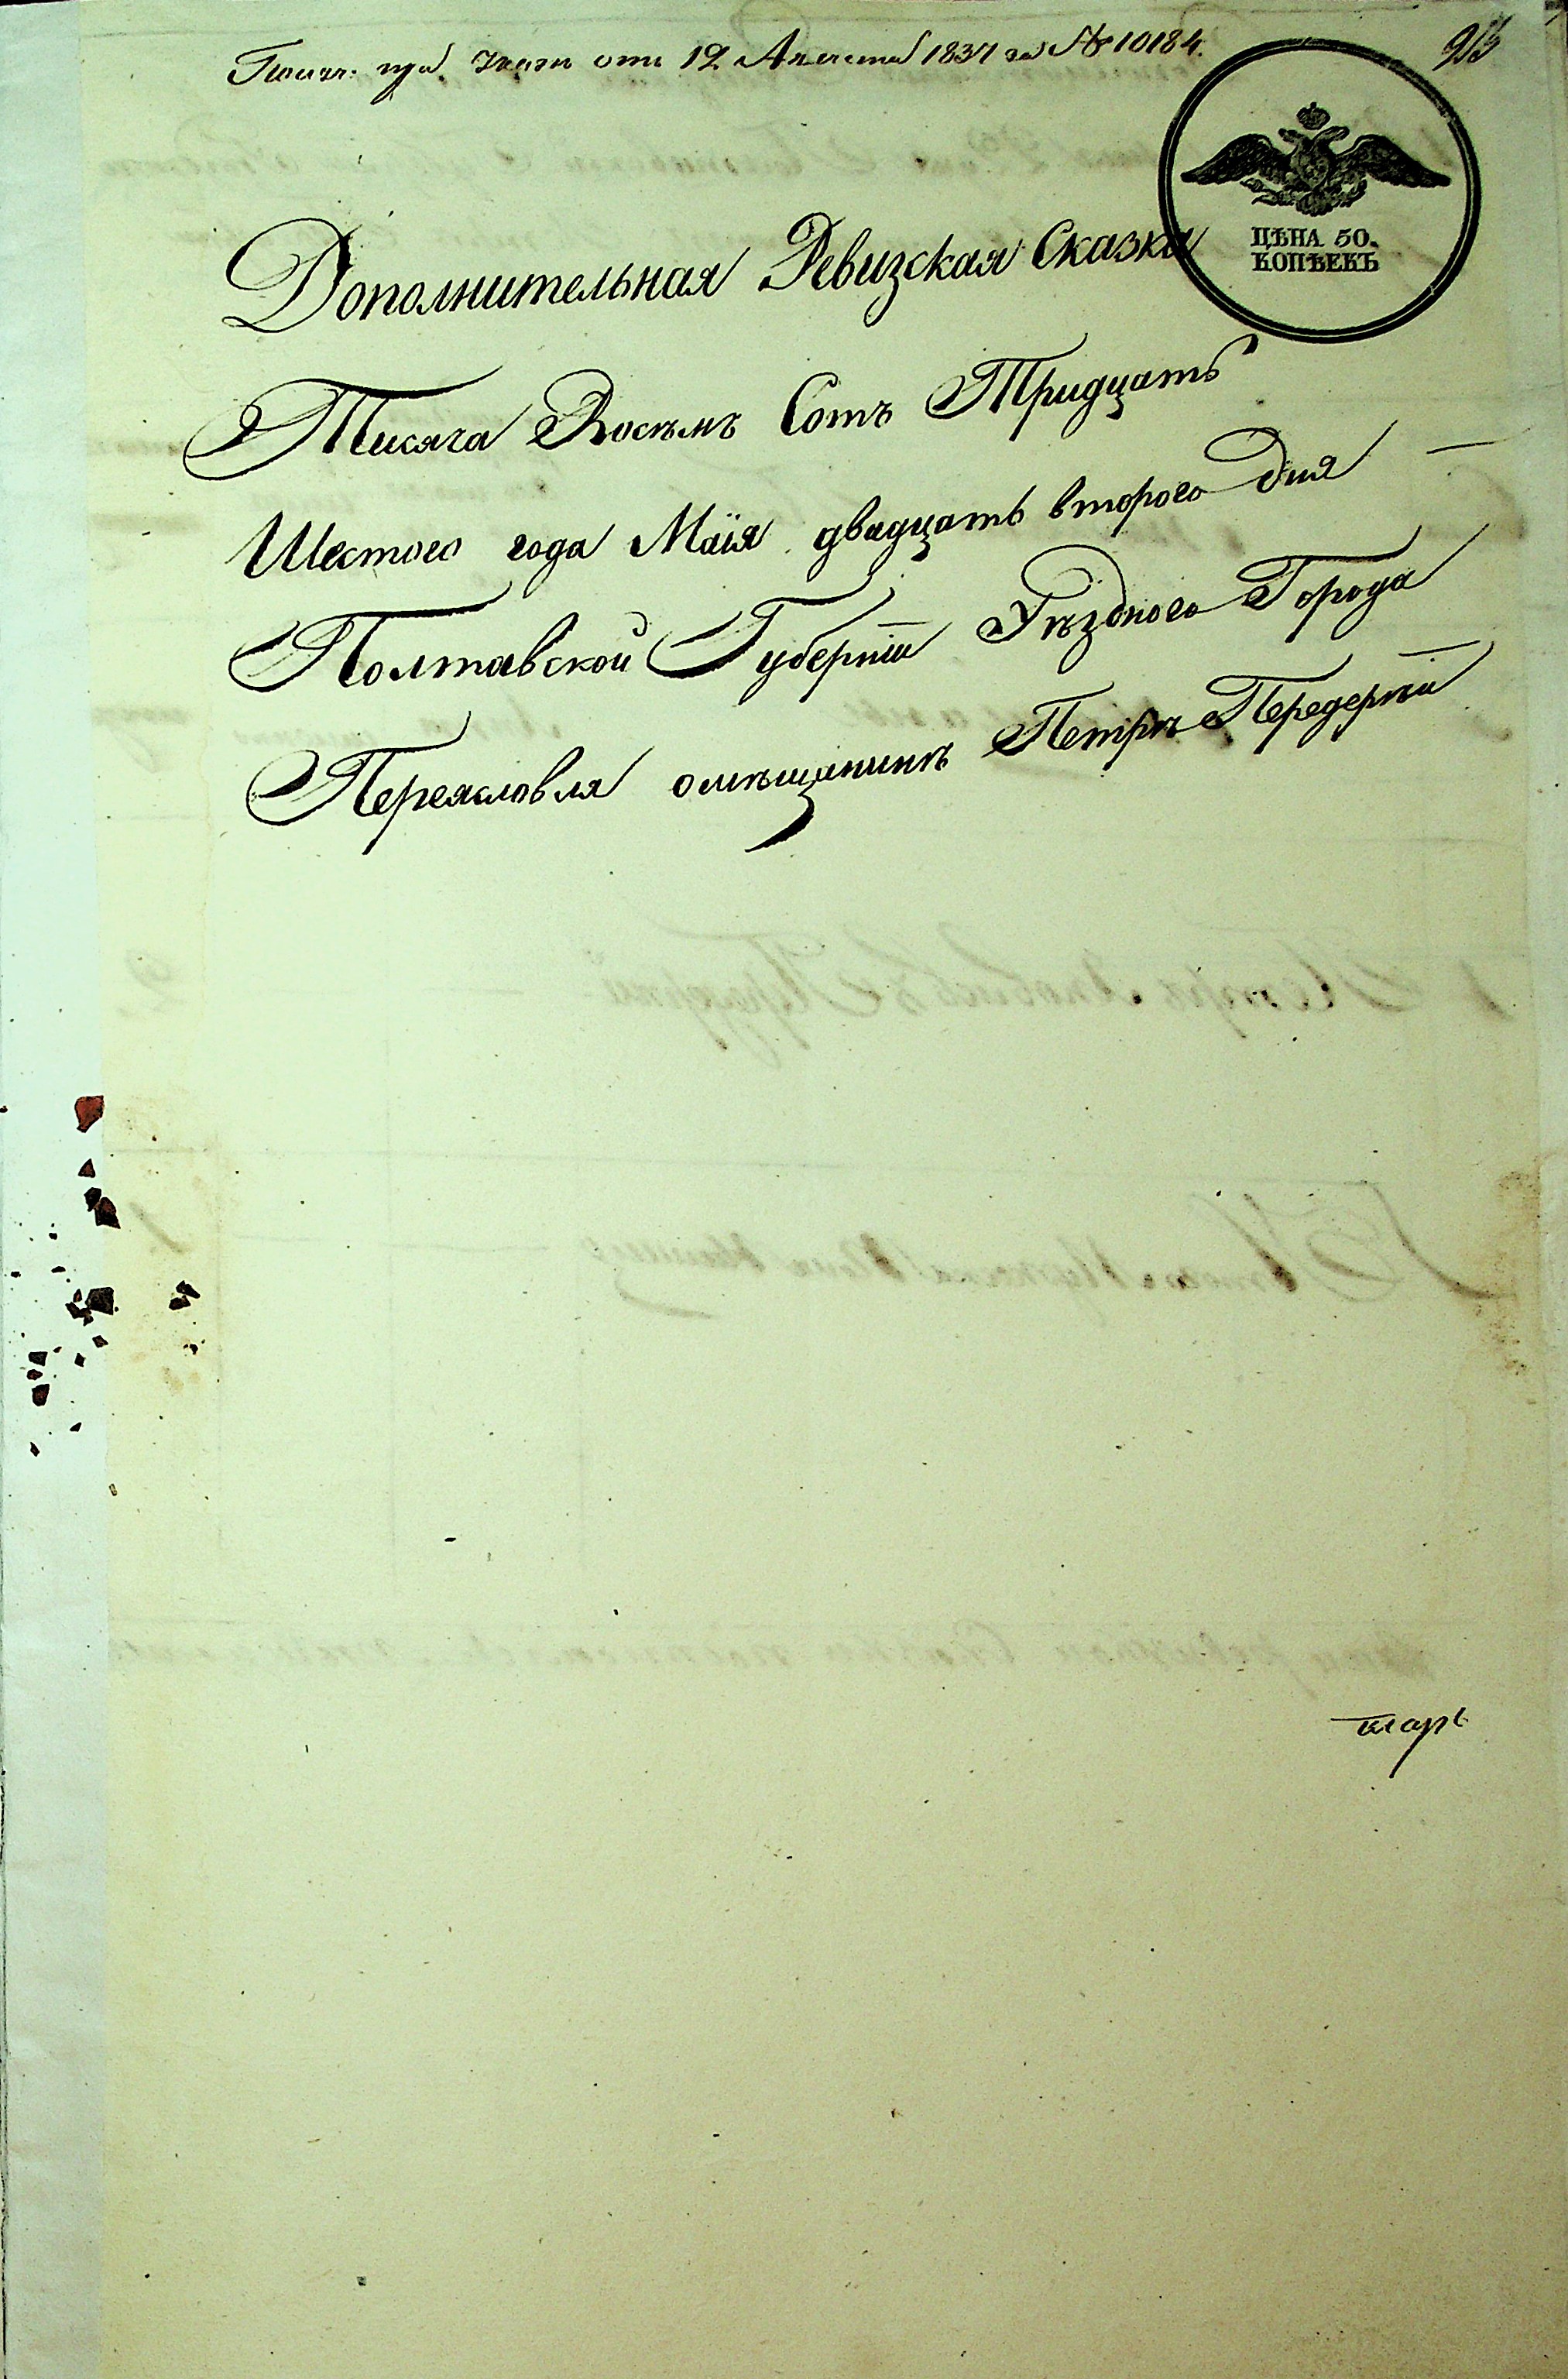 Получ: при Указе отъ 12 Августа 1837 за № 10184.
ЦѢНА 50.
КОПѢЕКЪ
Дополнительная Ревизская Сказка
Тисяча Восѣмъ Сотъ Тридцать
Шестого года Маїя двадцать второго дня
Полтавской Губерніи Уѣздного Города
Переяславля омѣщанинѣ Петрѣ Передерѣи
тарь